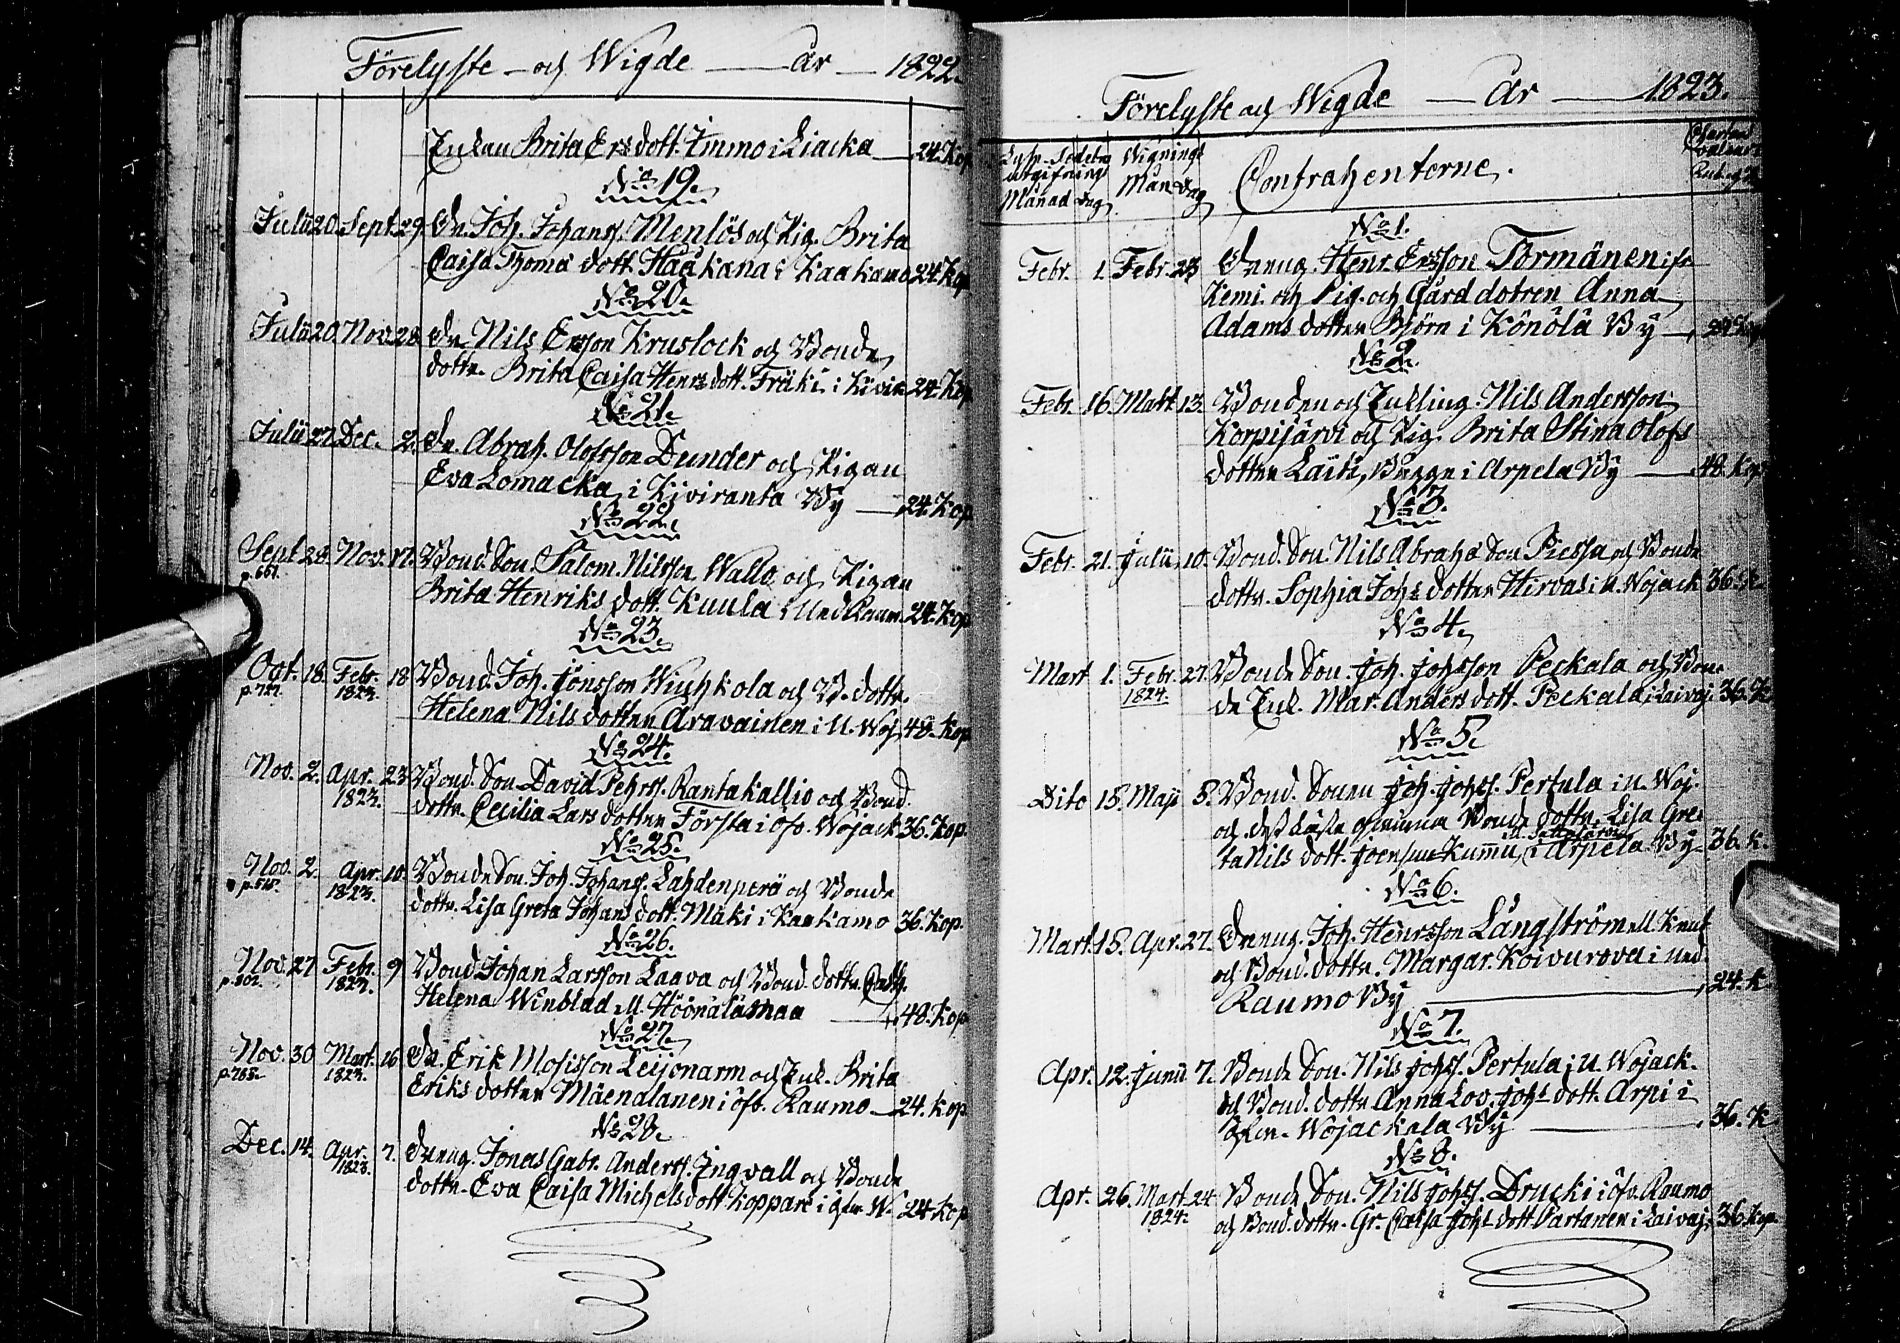 Förelyste och Wigde år 1822.
Enkan Brita Ersdott. Immo i Liacka 24. Kop
No 19.
Julii 20. Sept. 29. Dr. Joh. Johanss. Menlös och Pig. Brita
Caisa Thomæ dott. Haäkana i Kaakamo 24. Kop
No 20.
Julii 20. Nov. 28. Dr. Nils Ersson Kruslock och Bonde
dottr. Brita Caisa Henrs dott. Fräki i Kivir. 24. Kop
No 21.
Julii 27. Dec. 2. Dr. Abrah. Olofsson Dunder och Pigan
Eva Lomacka i Kiviranta By 24. Kop
No 22.
Sept. 28. Nov. 17. Bond. Son. Salom. Nilsson Wallo och Pigan
p. 661.
Brita Henriks dott. Kuula i Ned Raum. 24. Kop
No 23.
Oct. 18. Febr. 18 Bond. Joh. Jönsson Wiuhkola och B. dottr.
p. 727. 1823.
Helena Nils dotter Aravainen i N. Woj. 48. Kop
No 24.
Nov. 2. Apr. 23. Bond. Son David Pehrss. Rantakallio och Bond.
1823.
dottr. Cecilia Lars dotter Första i Öfv. Wojack 36. Kop.
No 25.
Nov. 2. Apr. 10. Bonde Son. Joh. Johanss. Lahdenperä och Bonde
p. 515. 1823.
dottr. Lisa Greta Johans dott. Mäki i Kaakamo 36. Kop.
No 26.
Nov. 27 Febr. 9. Bond Johan Larsson Laava och Bond. dottr. Cath.
p. 802. 1823.
Helena Winblad ell. Höönälänmaa 48. Kop
No 27.
Nov. 30 Mart. 16 Dr. Erik Mosisson Leijonarm och Enk. Brita
p. 765. 1823.
Eriks dotter Mäenalanen i Öfv. Raumo 24. Kop
No 28.
Dec. 14. Apr. 7. Dreng. Jonas Gabr. Anderss. Ingvall och Bonde
1823.
dottr. Eva Caisa Michels dott. Koppare i Öfr W. 24 Kop
Förelyste och Wigde År 1823.
Lysn. Sedeln Wignings
utgifning
Månad dag Mån dag Contrahenterne.
No 1.
Febr. 1. Febr. 23 Dreng. Henr. Ersson Tormänen ifr.
Kemi och Pig. och Gård dotren Anna
Adams dotter Björn i Könölä By 24 Kop
No 2.
Febr. 16. Mart. 13. Bonden och Enkling. Nils Andersson
Korpijärvi och Pig. Brita Stina Olofs
dotter Laiti, Begge i Arpela By 48. Kop
No 3.
Febr. 21. Julii 10. Bond. Son. Nils Abrahs Son Piessa och Bonde
dottr. Sophia Johs dotter Hirvas i N. Wojack. 36. K
No 4.
Mart. 1. Febr. 27. Bonde Son. Joh. Johsson Peckala och Bon
1824.
de Enk. Mar. Anders dott. Peckala i Laivaj. 36. K
No 5.
Dito 15. Maji 8. Bond. Sonen Joh. Johss. Pertula i N. Woj.
och Bonde dottr. Lisa Gre
ta Nils dott. Joensuu Kummu i Arpela By 36. K.
No 6.
Mart. 15. Apr. 27. Dreng. Joh. Henrsson Långström ell. Knut
och Bond. dottr. Margar. Koivurova i Ned.
Raumo By 24. K.
No 7.
Apr. 12. Junii 7. Bonde Son. Nils Johss. Pertula i N. Wojack.
och Bond. dottr Anna Lov. Johs dott. Arpi i
Öfver. Wojackala By 36. K
No 8.
Apr. 26. Mart. 24. Bonde Son. Nils Johss. Drucki i Öfv. Raumo
1824.
och Bond. dottr. Gr. Caisa Johs dott. Partanen i Laivaj. 36 Kop.